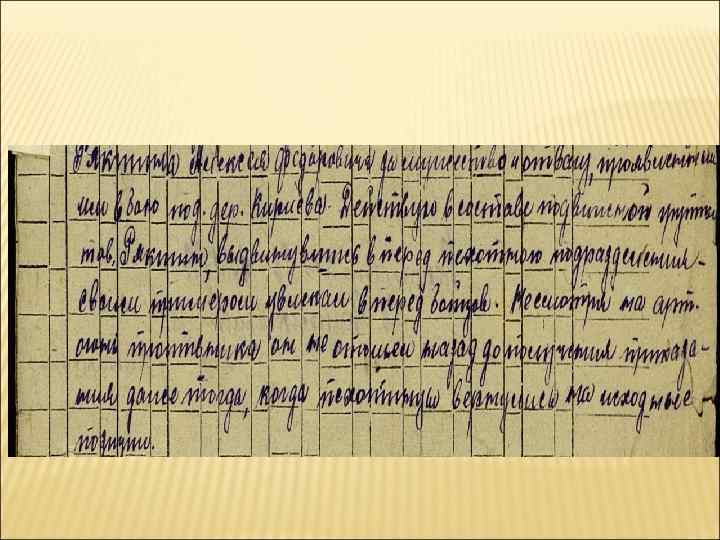 Рякшина Алексея Федоровича за мужество и отвагу, проявленны
ми в бою под. дер. Кириева. Действуя в составе подвижной группы
тов. Рякшин, выдвинувшись в перед пехотного подразделения-
своим примером увлекал в перед бойцов. Несмотря на арт.
огонь противника он не отошел назад до получения приказа-
ния даже тогда, когда пехотинцы вернулись на исходные
позиции.